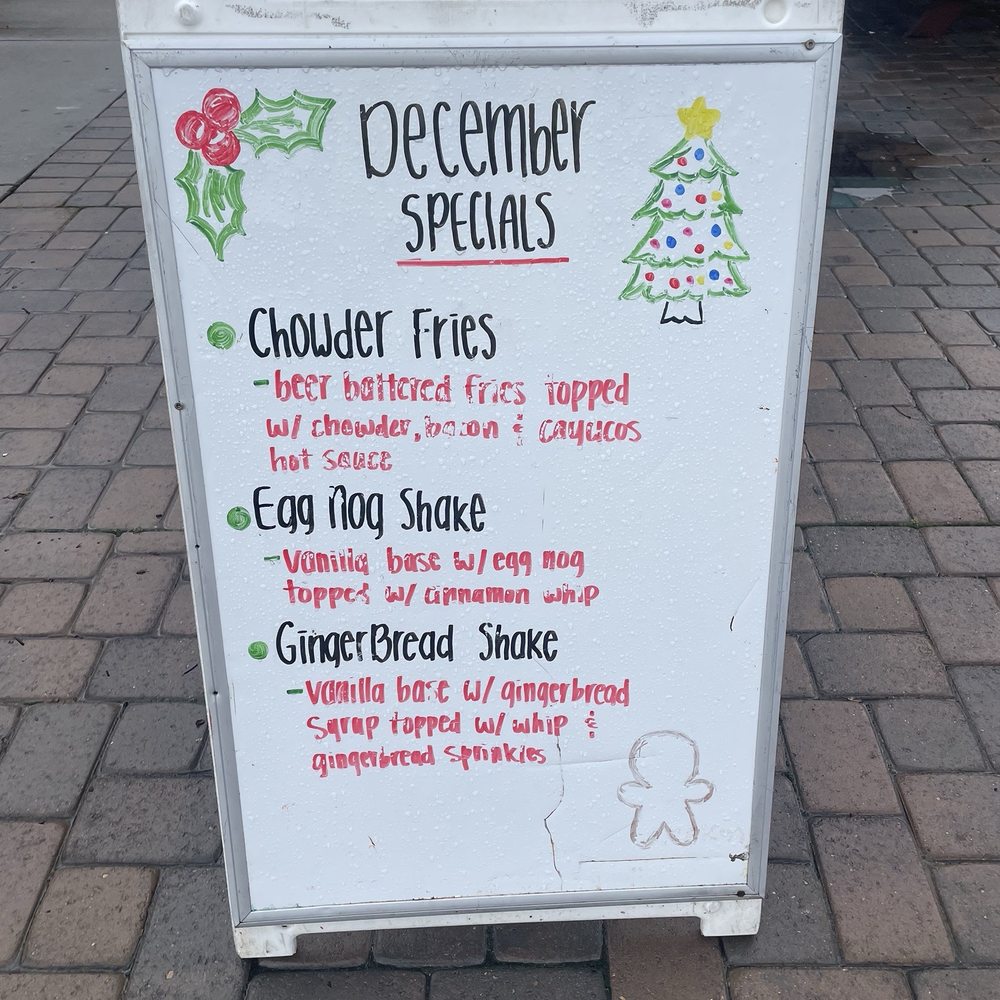 December
SPECIALS
Chowder Fries
- beer battered fries topped
w/ chowder, bacon & cayucos
hot sauce
Egg Nog Shake
- Vanilla base w/ egg nog
topped w/ cinnamon whip
GingerBread Shake
- vanilla base w/ gingerbread
syrup topped w/ whip &
gingerbread sprinkles